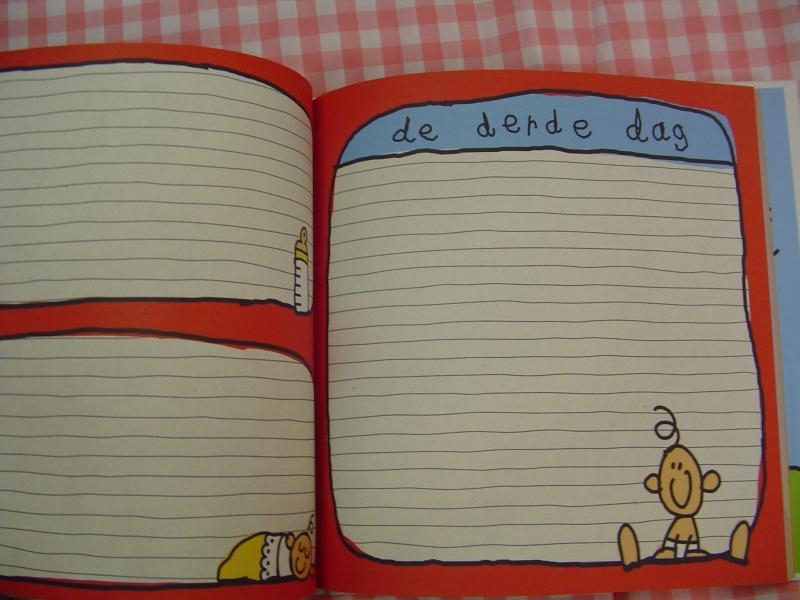 de derde dag